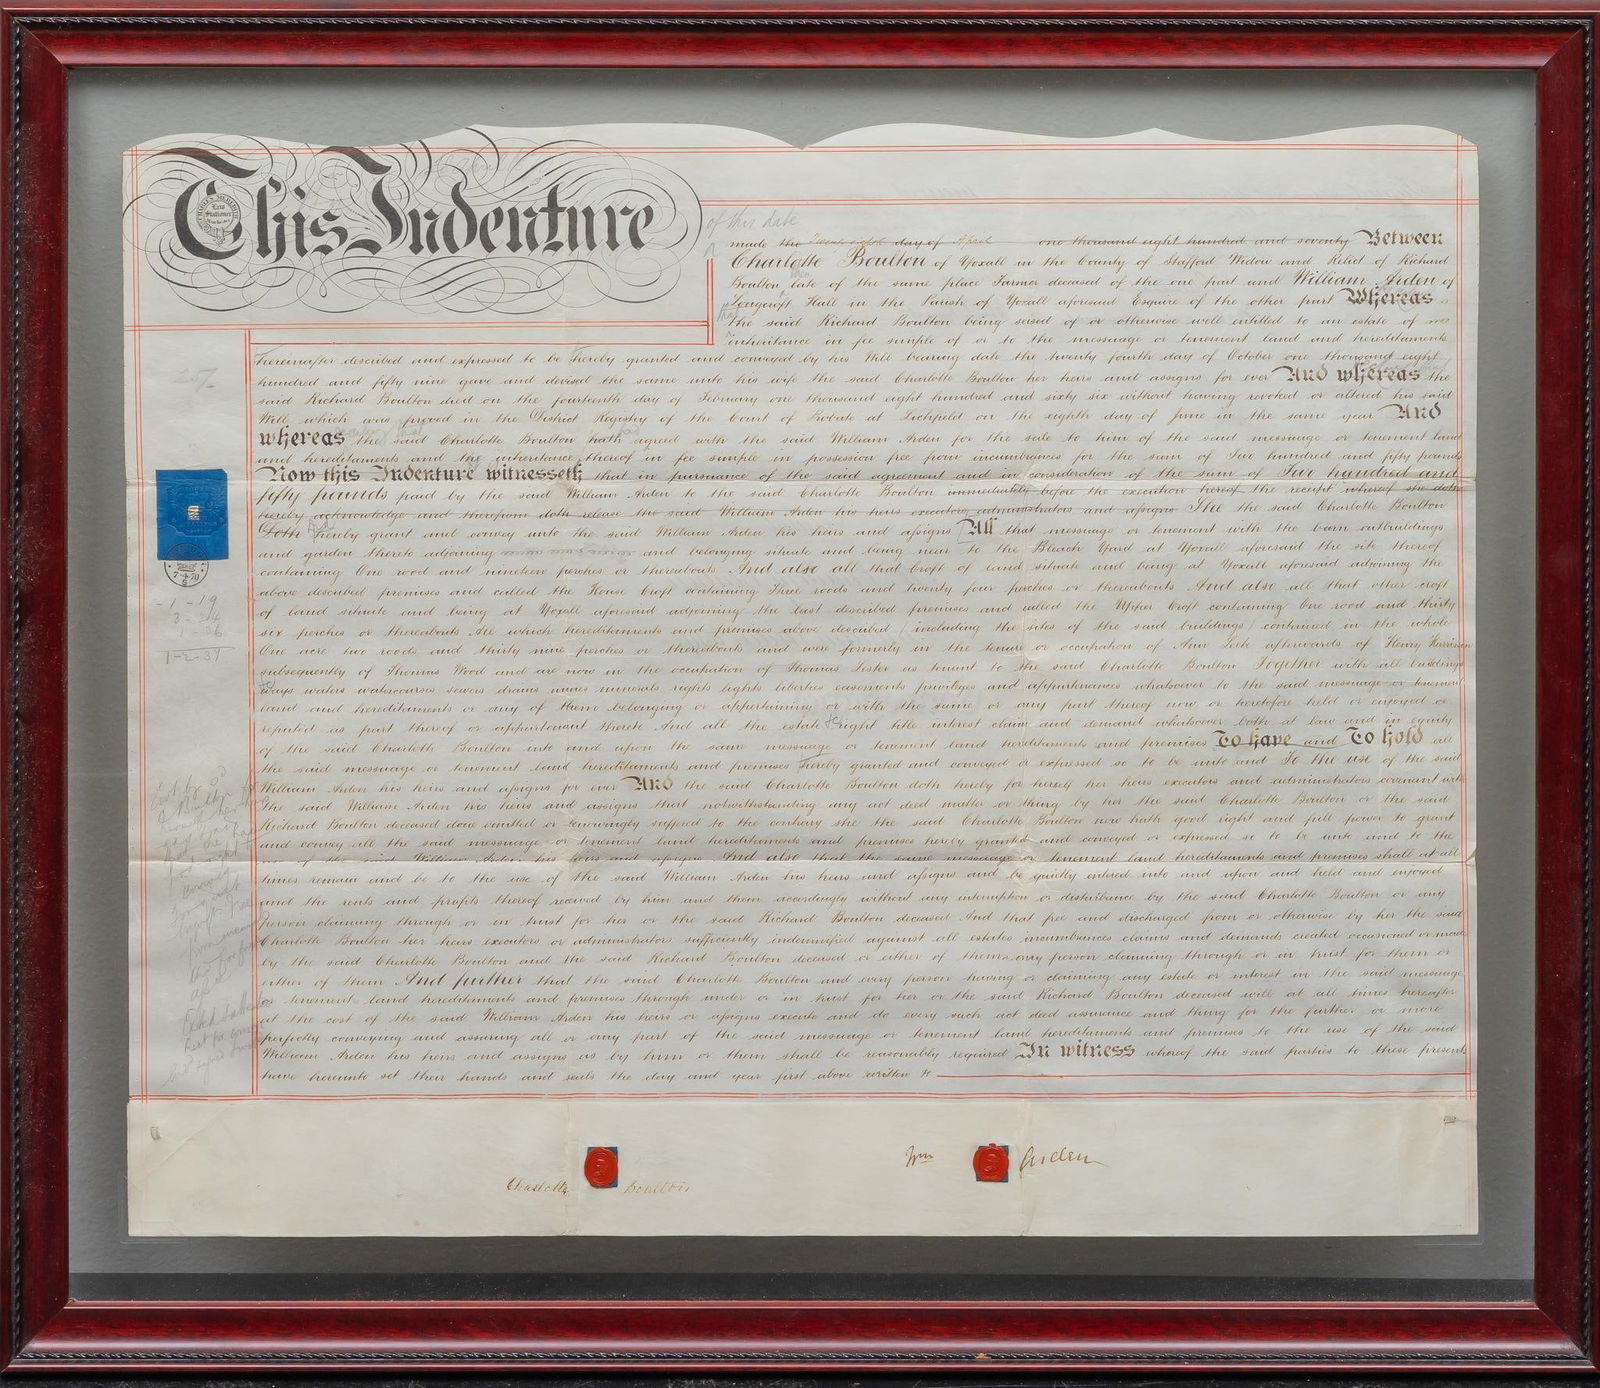 This Indenture
of this date
made the Twenty eighth day of April one thousand eight hundred and seventy Between
Charlotte Boulton of Yoxall in the County of Stafford Widow and Relict of Richard
Boulton late of the same place Farmer deceased of the one part and William Arden of
Longcroft Hall in the Parish of Yoxall aforesaid Esquire of the other part Whereas
the said Richard Boulton being seised of or otherwise well entitled to an estate of
inheritance in fee simple of or to the messuage or tenement land and hereditaments
hereinafter described and expressed to be hereby granted and conveyed by his Will bearing date the twenty fourth day of October one thousand eight
hundred and fifty nine gave and devised the same unto his wife the said Charlotte Boulton her heirs and assigns for ever And whereas the
said Richard Boulton died on the fourteenth day of February one thousand eight hundred and sixty six without having revoked or altered his said
Will which was proved in the District Registry of the Court of Probate at Lichfield on the eighth day of June in the same year And
whereas the said Charlotte Boulton hath agreed with the said William Arden for the sale to him of the said messuage or tenement land
and hereditaments and the inheritance thereof in fee simple in possession free from incumbrances for the sum of Two hundred and fifty pounds
Now this Indenture witnesseth that in pursuance of the said agreement and in consideration of the sum of Two hundred and
fifty pounds paid by the said William Arden to the said Charlotte Boulton immediately before the execution hereof the receipt whereof she doth
hereby acknowledge and therefrom doth release the said William Arden his heirs executors administrators and assigns She the said Charlotte Boulton
Doth hereby grant and convey unto the said William Arden his heirs and assigns All that messuage or tenement with the barn outbuildings
and garden thereto adjoining and belonging situate and being near to the Bleach Yard at Yoxall aforesaid the site thereof
containing One rood and nineteen perches or thereabouts And also all that Croft of land situate and being at Yoxall aforesaid adjoining the
above described premises and called the House Croft containing Three roods and twenty four perches or thereabouts And also all that other croft
of land situate and being at Yoxall aforesaid adjoining the last described premises and called the Upper Croft containing One rood and thirty
six perches or thereabouts All which hereditaments and premises above described (including the sites of the said buildings) contained in the whole
One acre two roods and thirty nine perches or thereabouts and were formerly in the tenure or occupation of Ann Leek afterwards of Henry Harrison
subsequently of Thomas Wood and are now in the occupation of Thomas Lester as tenant to the said Charlotte Boulton Together with all buildings
ways waters watercourses sewers drains mines minerals rights lights liberties easements privileges and appurtenances whatsoever to the said messuage or tenement
land and hereditaments or any of them belonging or appertaining or with the same or any part thereof now or heretofore held or enjoyed or
reputed as part thereof or appurtenant thereto And all the estate right title interest claim and demand whatsoever both at law and in equity
of the said Charlotte Boulton into and upon the same messuage or tenement land hereditaments and premises To have and To hold all
the said messuage or tenement land hereditaments and premises hereby granted and conveyed or expressed so to be unto and To the use of the said
William Arden his heirs and assigns for ever And the said Charlotte Boulton doth hereby for herself her heirs executors and administrators covenant with
the said William Arden his heirs and assigns that notwithstanding any act deed matter or thing by her the said Charlotte Boulton or the said
Richard Boulton deceased done omitted or knowingly suffered to the contrary she the said Charlotte Boulton now hath good right and full power to grant
and convey all the said messuage or tenement land hereditaments and premises hereby granted and conveyed or expressed so to be unto and to the
use of the said William Arden his heirs and assigns And also that the same messuage or tenement land hereditaments and premises shall at all
times remain and be to the use of the said William Arden his heirs and assigns and be quietly entered into and upon and held and enjoyed
and the rents and profits thereof received by him and them accordingly without any interruption or disturbance by the said Charlotte Boulton or any
person claiming through or in trust for her or the said Richard Boulton deceased And that free and discharged from or otherwise by her the said
Charlotte Boulton her heirs executors or administrators sufficiently indemnified against all estates incumbrances claims and demands created occasioned or made
by the said Charlotte Boulton and the said Richard Boulton deceased or either of them or any person claiming through or in trust for them or
either of them And further that the said Charlotte Boulton and every person having or claiming any estate or interest in the said messuage
or tenement land hereditaments and premises through under or in trust for her or the said Richard Boulton deceased will at all times hereafter
at the cost of the said William Arden his heirs or assigns execute and do every such act deed assurance and thing for the further or more
perfectly conveying and assuring all or any part of the said messuage or tenement land hereditaments and premises to the use of the said
William Arden his heirs and assigns as by him or them shall be reasonably required In witness whereof the said parties to these presents
have hereunto set their hands and seals the day and year first above written
- 1 - 19
3 - 24
1 - 36
1 - 2 - 39
Charlotte Boulton
Wm Arden